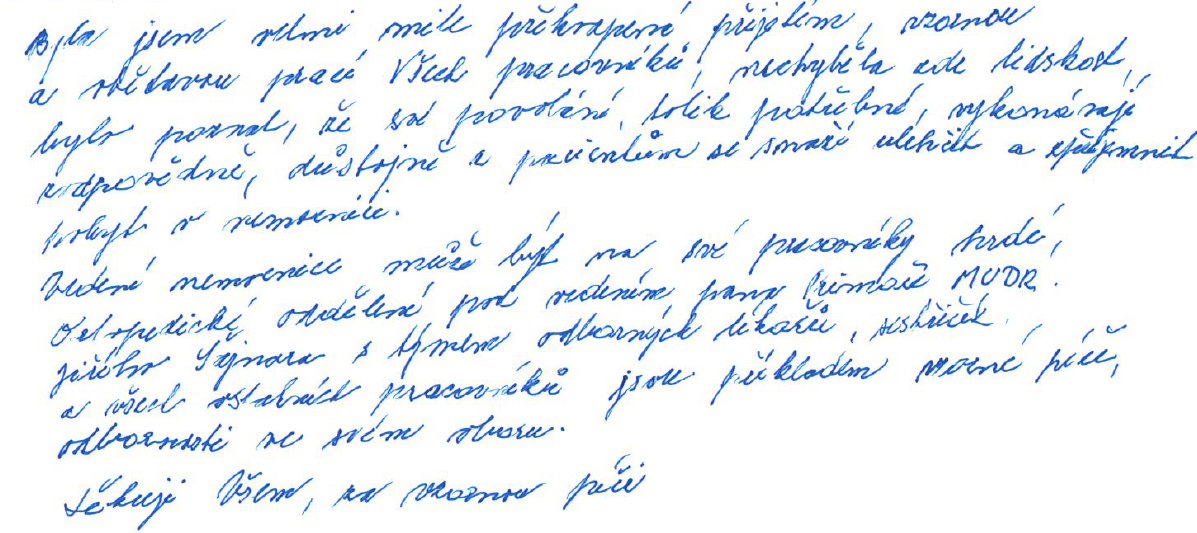 Byla jsem velmi mile překvapená přijetím, vzornou
a obětavou prací Všech pracovníků, nechyběla zde lidskost,
bylo poznat, že své povolání, tolik potřebné, vykonávají
zodpovědně, důstojně a pacientům se snaží ulehčit a zpříjemnit
pobyt v nemocnici.
Vedení nemocnice může být na své pracovníky hrdé,
Ortopedické oddělení pod vedením pana Primáře MUDR.
Jiřího Sejnara s týmem odborných lékařů, sestřiček
a všech ostatních pracovníků jsou příkladem vzorné péče,
odbornosti ve svém oboru.
Děkuji Všem, za vzornou péči